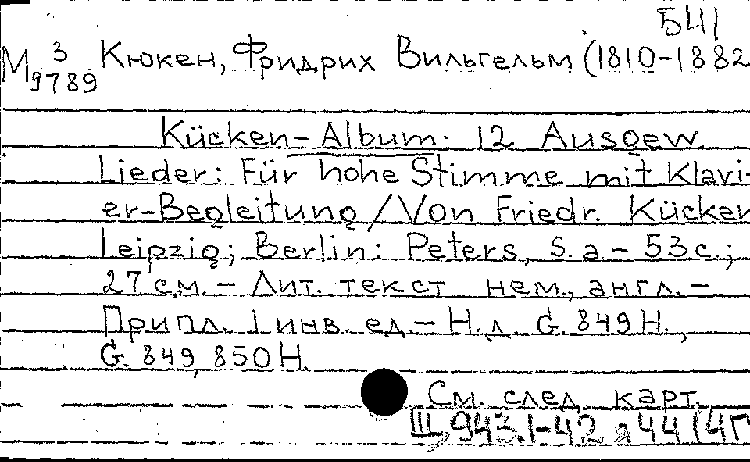 541
М 3/9789 Кюкен, Фридрих Вильгельм (1810-1882
Kücken-Album: 12 Ausgew.
Lieder: Für hohe Stimme mit Klavi-
er-Begleitung / Von Friedr. Kücken
Leipzig; Berlin: Peters, s.a. - 53 с.;
27 см. - Лит. текст нем., англ. -
Припл. 1 инв. ед. - Н.д. G. 849 H.,
G. 849, 850 H.
См. след. карт.
Ш 943.1-42 я 44 (4Г